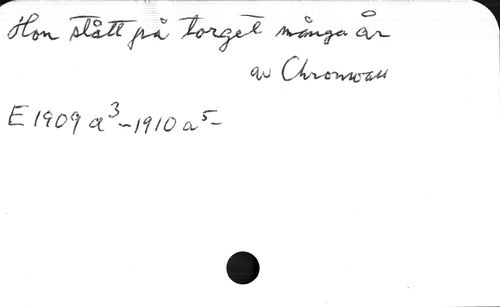 Hon stått på torget många år
av Chronwall
E 1909 a³-1910 a⁵-